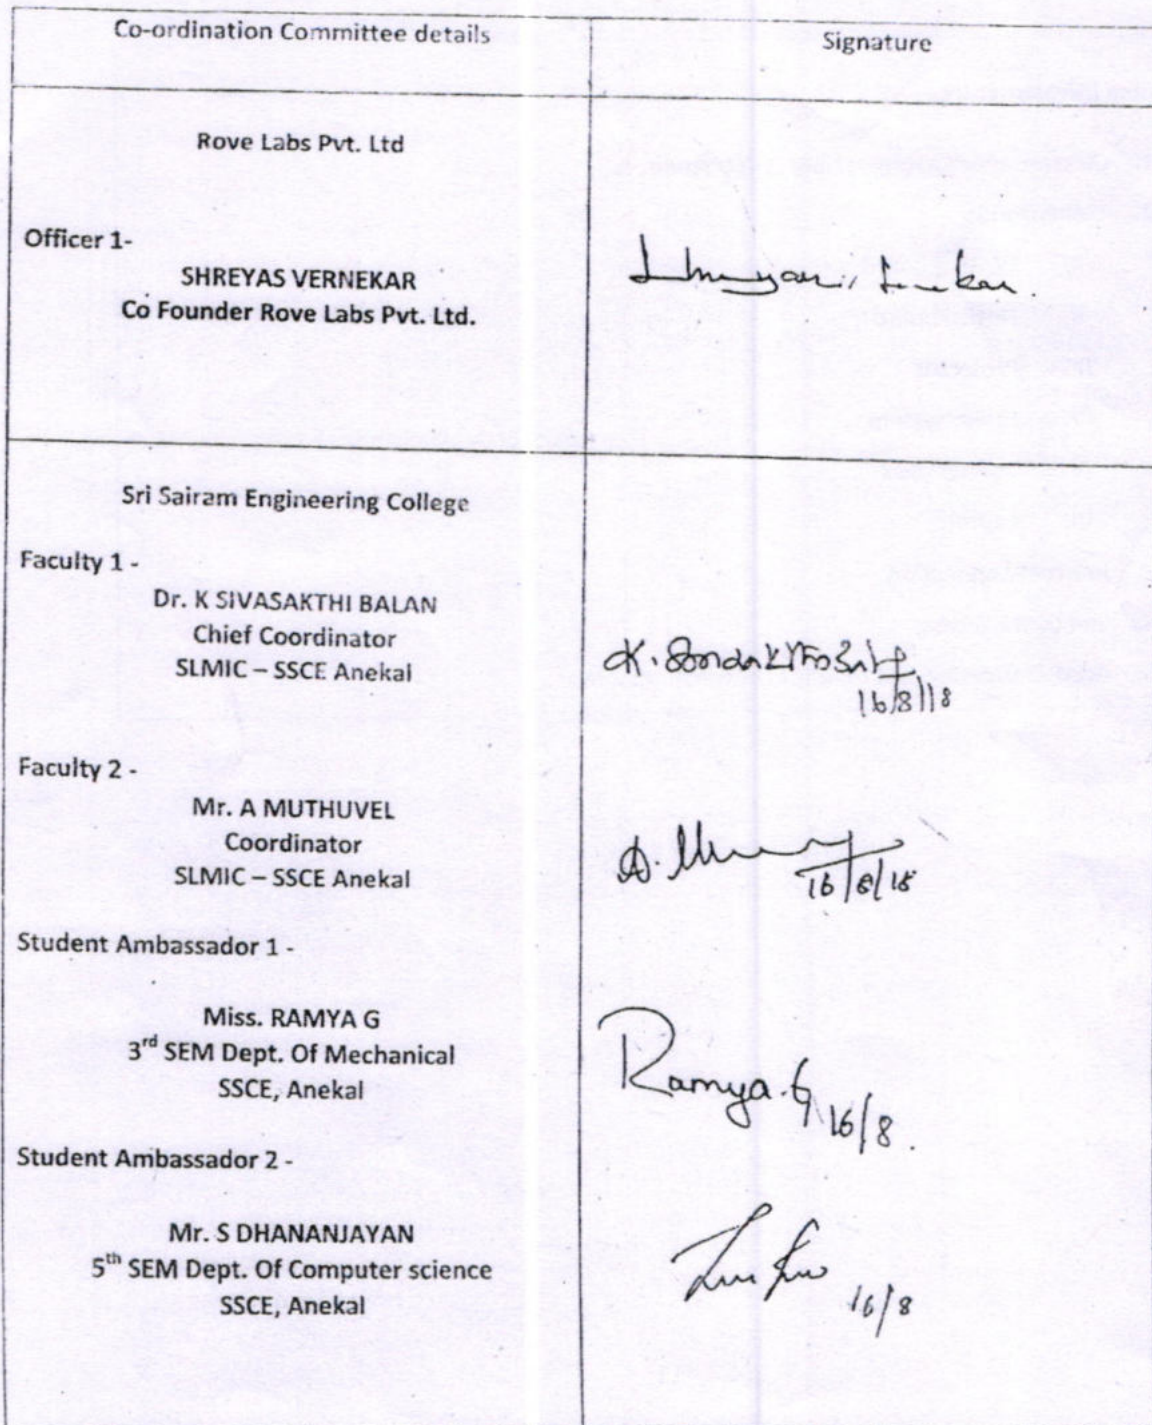 Co-ordination Committee details
Signature
Rove Labs Pvt. Ltd
Officer 1-
SHREYAS VERNEKAR
Co Founder Rove Labs Pvt. Ltd.
Sri Sairam Engineering College
Faculty 1 -
Dr. K SIVASAKTHI BALAN
Chief Coordinator
SLMIC – SSCE Anekal
K.
16/8/18
Faculty 2 -
Mr. A MUTHUVEL
Coordinator
SLMIC – SSCE Anekal
A.
16/8/18
Student Ambassador 1 -
Miss. RAMYA G
3rd SEM Dept. Of Mechanical
SSCE, Anekal
Ramya.G 16/8.
Student Ambassador 2 -
Mr. S DHANANJAYAN
5th SEM Dept. Of Computer science
SSCE, Anekal
16/8